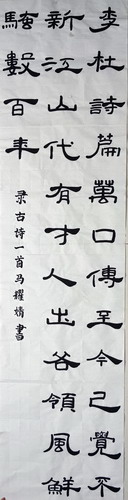 李杜詩篇萬口傳至今已覺不
新江山代有才人出各領風
騷數百年
录古诗一首马耀嬌書